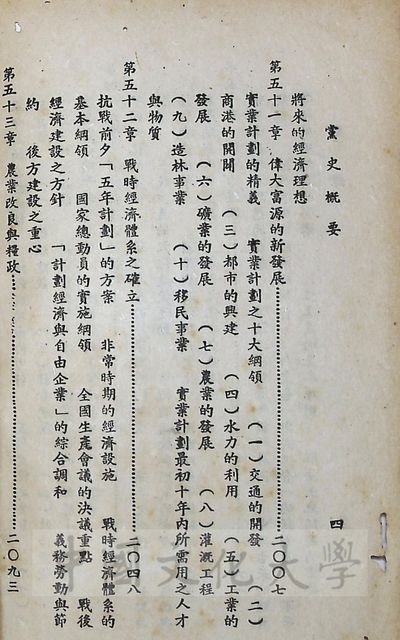 黨史概要
四
將來的經濟理想
第五十一章 偉大富源的新發展……………………二〇〇七
實業計劃的精義 實業計劃之十大綱領 (一)交通的開發 (二)
商港的開闢 (三)都市的興建 (四)水力的利用 (五)工業的
發展 (六)礦業的發展 (七)農業的發展 (八)灌溉工程
(九)造林事業 (十)移民事業 實業計劃最初十年內所需用之人才
與物質
第五十二章 戰時經濟體系之確立……………………二〇四八
抗戰前夕「五年計劃」的方案 非常時期的經濟設施 戰時經濟體系的
基本綱領 國家總動員的實施綱領 全國生產會議的決議重點 戰後
經濟建設之方針 「計劃經濟與自由企業」的綜合調和 義務勞動與節
約 後方建設之重心
第五十三章 農業改良與糧政……………………二〇九三
中國文化大學